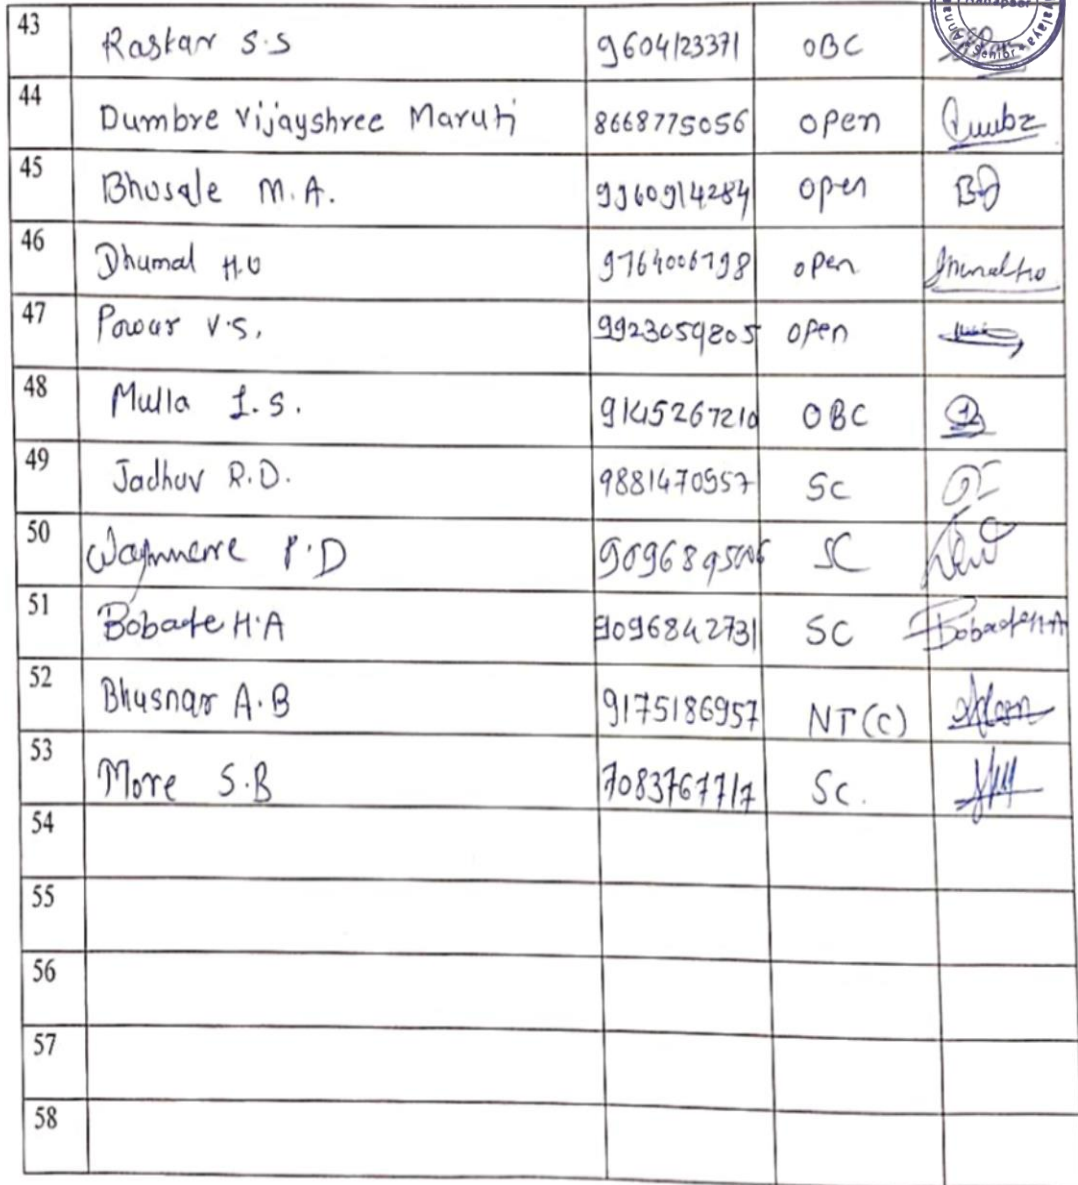 43 Rastar S.S 9604123371 OBC
44 Dumbre Vijayshree Maruti 8668775056 open
45 Bhosale M.A. 9960914284 open
46 Dhumal H.U 9764006798 open
47 Powar V.S. 9923059805 open
48 Mulla I.S. 9145267210 OBC
49 Jadhav R.D. 9881470957 SC
50 P.D SC
51 Bobade H.A 9096842731 SC Bobade H.A
52 Bhusnar A.B 9175186957 NT(C)
53 More S.B 7083767717 SC.
54
55
56
57
58